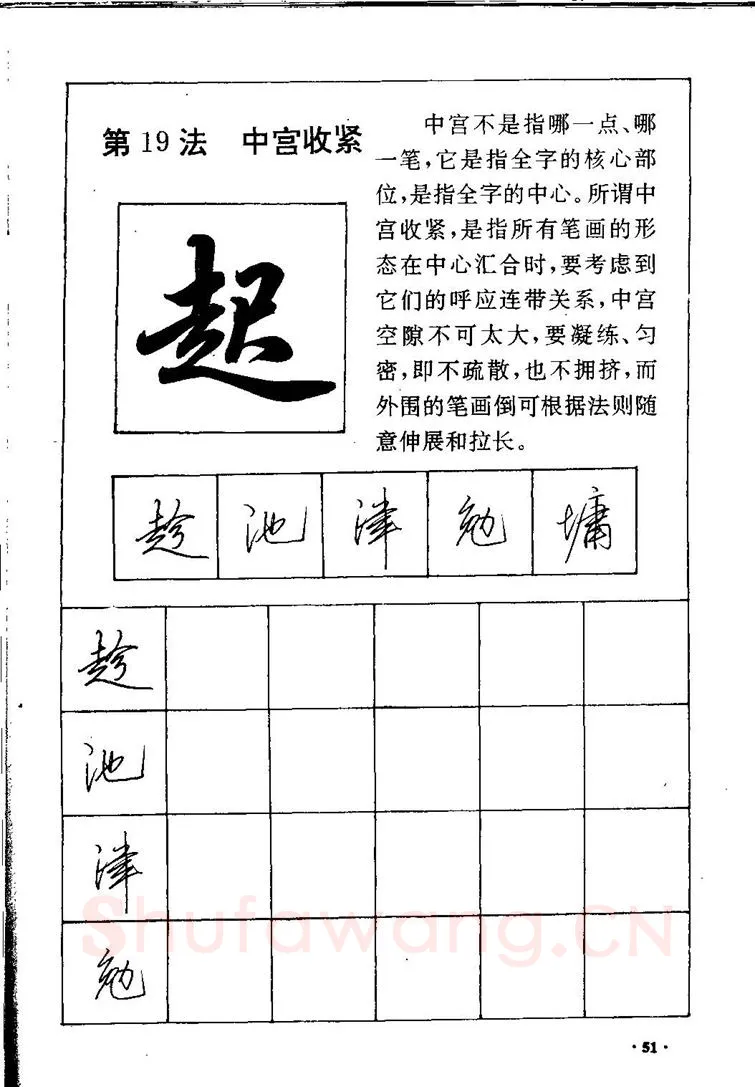 第19法　中宫收紧
中宫不是指哪一点、哪
一笔,它是指全字的核心部
位,是指全字的中心。所谓中
宫收紧,是指所有笔画的形
态在中心汇合时,要考虑到
它们的呼应连带关系,中宫
空隙不可太大,要凝练、匀
密,即不疏散,也不拥挤,而
外围的笔画倒可根据法则随
意伸展和拉长。
起
趁 池 津 勉 墉
趁
池
津
勉
Shufawang.CN
·51·